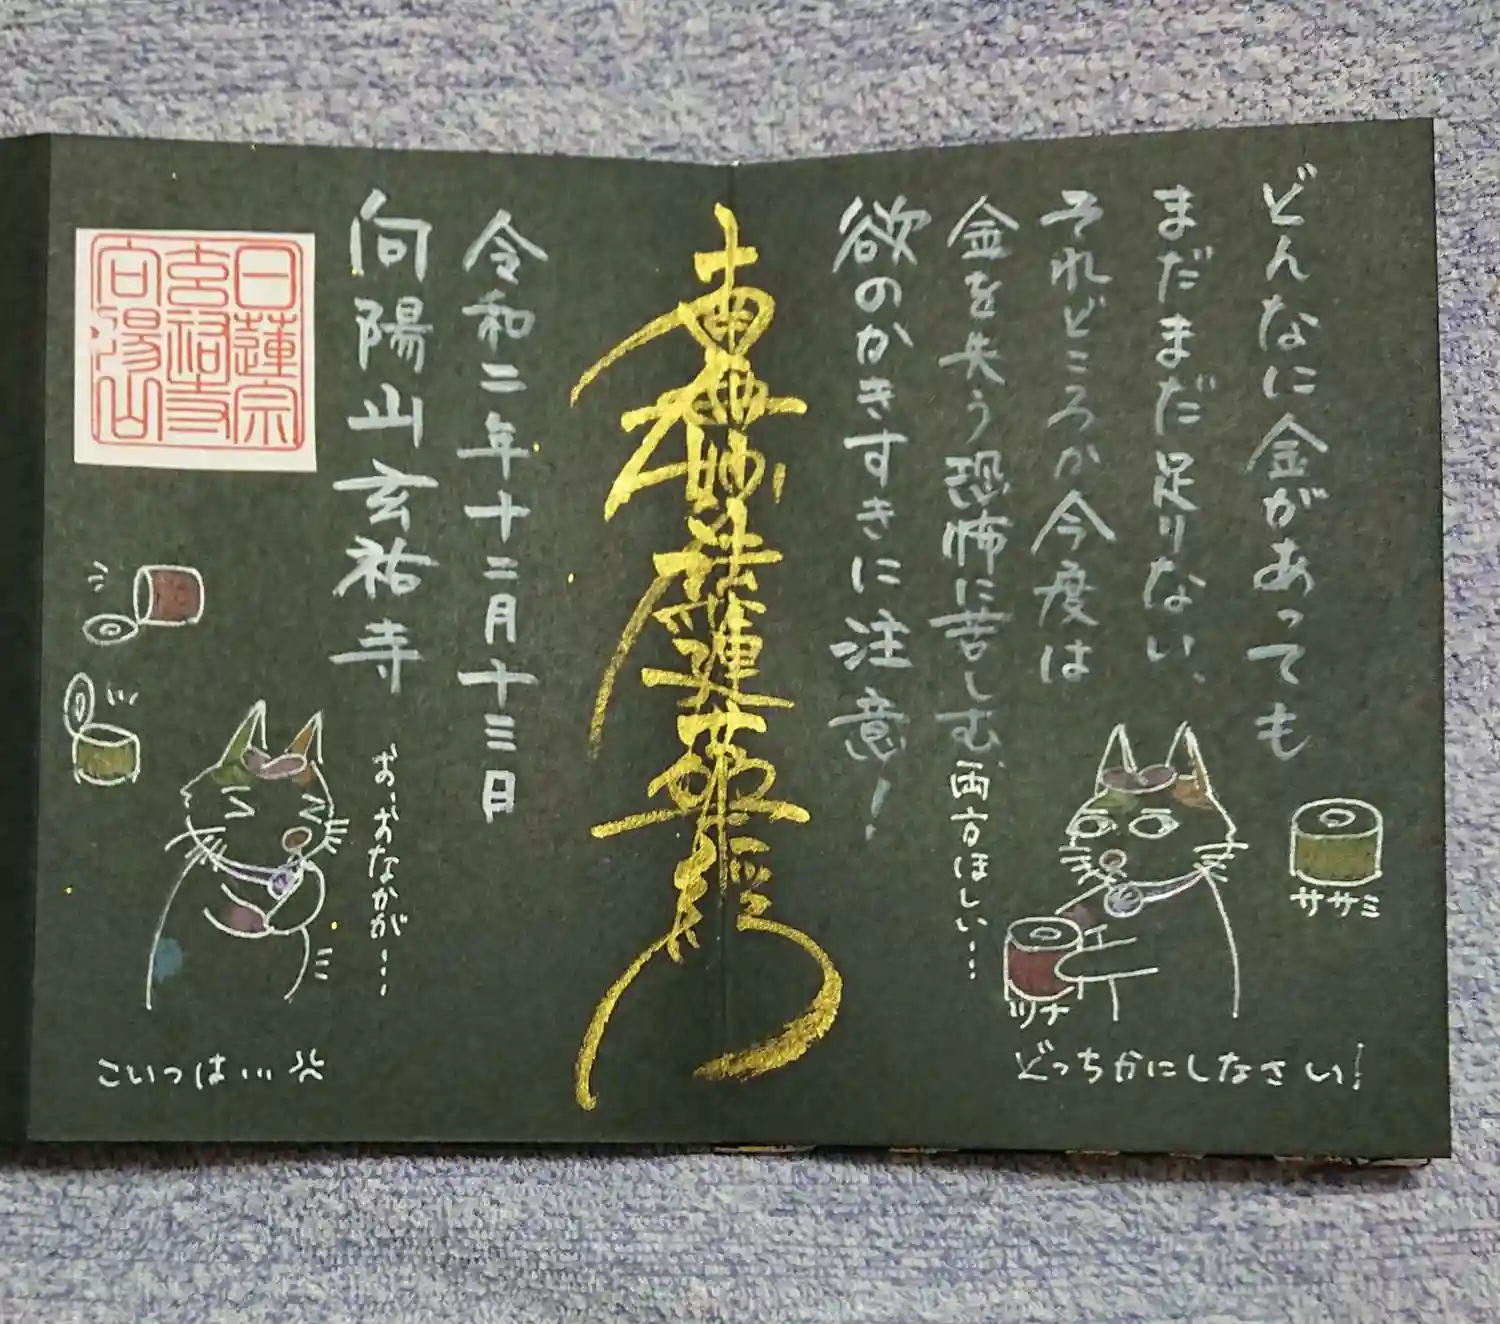 どんなに金があっても
まだまだ足りない、
それどころか今度は
金を失う恐怖に苦しむ。
欲のかきすぎに注意！
ササミ
両方ほしい…
ツナ
どっちかにしなさい！
南無妙法蓮華経
令和二年十二月十三日
向陽山玄祐寺
お、おなかが…
こいつは…
日蓮宗
玄祐寺
向陽山